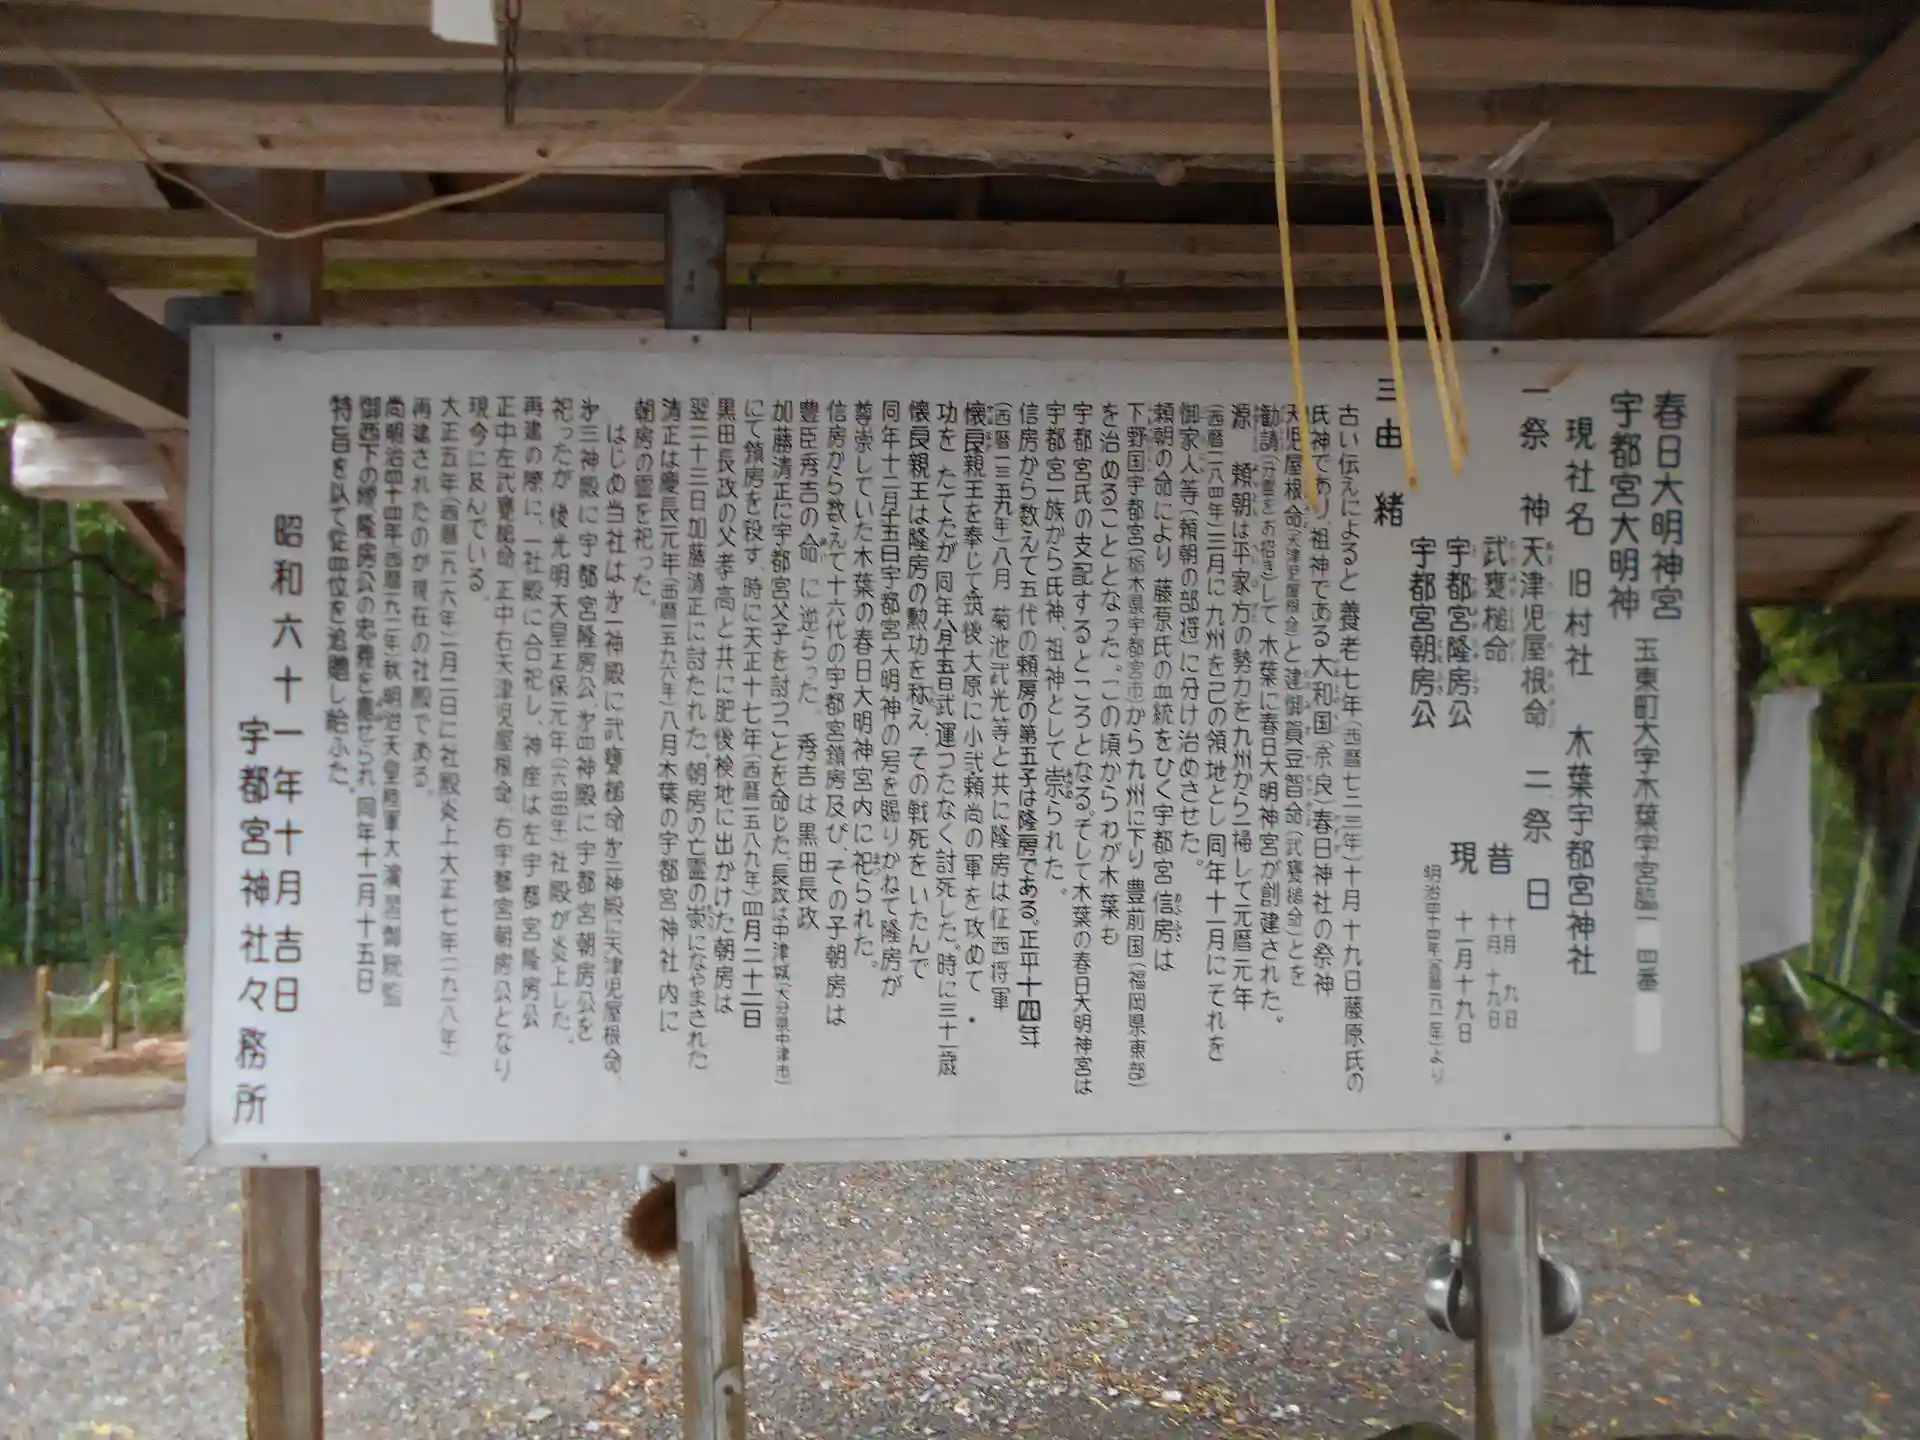 春日大明神宮
宇都宮大明神
玉東町大字木葉字宮脇一四番
現社名 旧村社 木葉宇都宮神社
一祭 神 天津児屋根命 二祭 日
武甕槌命
宇都宮隆房公
宇都宮朝房公
昔 十月 九日
十月 十九日
現 十一月十九日
明治四十四年(西暦一九一一年)より
三由 緒
古い伝えによると養老七年(西暦七二三年)十月十九日藤原氏の
氏神であり、祖神である大和国(奈良)春日神社の祭神
天児屋根命(天津児屋根命)と建御賀豆智命(武甕槌命)とを
勧請(分霊をお招き)して木葉に春日大明神宮が創建された。
源 頼朝は平家方の勢力を九州から一掃して元暦元年
(西暦一一八四年)三月に九州を己の領地とし同年十一月にそれを
御家人等(頼朝の部将)に分け治めさせた。
頼朝の命により藤原氏の血統をひく宇都宮信房は
下野国宇都宮(栃木県宇都宮市)から九州に下り豊前国(福岡県東部)
を治めることとなった。この頃からわが木葉も
宇都宮氏の支配するところとなる。そして木葉の春日大明神宮は
宇都宮一族から氏神、祖神として崇られた。
信房から数えて五代の頼房の第五子は隆房である。正平十四年
(西暦一三五九年)八月 菊池武光等と共に隆房は征西将軍
懐良親王を奉じて筑後大原に小弐頼尚の軍を攻めて
功をたてたが同年八月十五日武運つたなく討死した。時に三十一歳
懐良親王は隆房の勲功を称え、その戦死をいたんで
同年十二月十五日宇都宮大明神の号を賜りかねて隆房が
尊崇していた木葉の春日大明神宮内に祀られた。
信房から数えて十六代の宇都宮鎮房及び、その子朝房は
豊臣秀吉の命に逆らった。秀吉は黒田長政
加藤清正に宇都宮父子を討つことを命じた、長政は中津城(大分県中津市)
にて鎮房を殺す、時に天正十七年(西暦一五八九年)四月二十二日
黒田長政の父孝高と共に肥後検地に出かけた朝房は
翌二十三日加藤清正に討たれた。朝房の亡霊の祟になやまされた
清正は慶長元年(西暦一五九六年)八月木葉の宇都宮神社内に
朝房の霊を祀った。
はじめ当社は㐧一神殿に武甕槌命㐧二神殿に天津児屋根命、
㐧三神殿に宇都宮隆房公、㐧四神殿に宇都宮朝房公を
祀ったが後光明天皇正保元年(一六四四年)社殿が炎上した、
再建の際に、一社殿に合祀し、神座は左宇都宮隆房公
正中左武甕槌命、正中右天津児屋根命、右宇都宮朝房公となり
現今に及んでいる。
大正五年(西暦一九一六年)二月二日に社殿炎上大正七年(一九一八年)
再建されたのが現在の社殿である。
尚明治四十四年(西暦一九一一年)秋明治天皇陸軍大演習御統監
御西下の際隆房公の忠義を嘉せられ同年十一月十五日
特旨を以て従四位を追贈し給ふた。
昭和六十一年十月吉日
宇都宮神社々務所